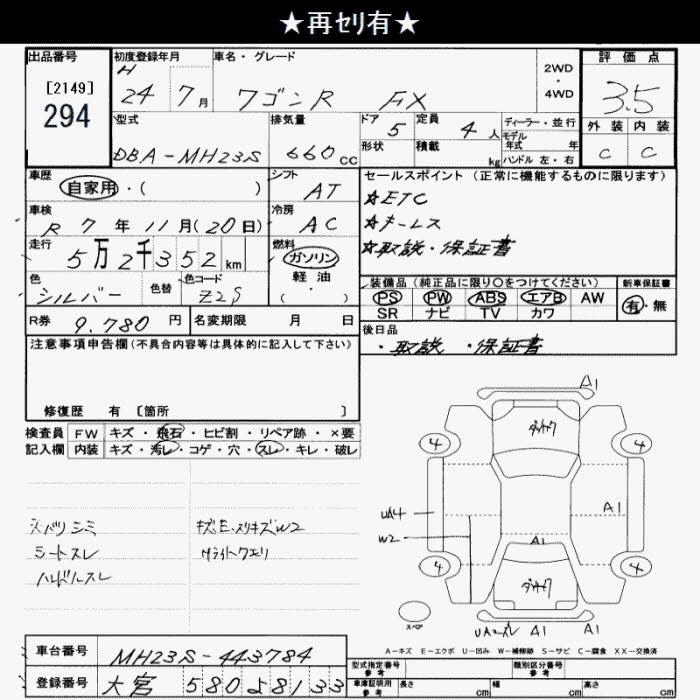 ★再ｾﾘ有★
出品番号
[2149]
294
初度登録年月
H
24 7月
車名・グレード
ワゴンR FX
2WD
・
4WD
評価点
3.5
外装 内装
C C
型式
DBA-MH23S
排気量
660cc
ドア 5
定員 4人
形状
積載 kg
ディーラー・並行
モデル
年式 年
ハンドル 左・右
車歴
自家用・( )
シフト
AT
車検
R 7年 11月(20日)
冷房
AC
走行
5万2千352km
燃料
ガソリン
軽油
( ・ )
色
シルバー
色替
色コード
Z2S
R券 9.780円
名変期限 月 日
セールスポイント(正常に機能するものに限ります)
☆ETC
☆キーレス
☆取説・保証書
装備品(純正品に限り○をつけてください)
PS PW ABS エアB AW
SR ナビ TV カワ
新車保証書
有・無
後日品
・取説・保証書
注意事項申告欄(不具合内容等は具体的に記入して下さい)
修復歴 有 [箇所 ]
検査員 FW キズ・飛石・ヒビ割・リペア跡・×要
記入欄 内装 キズ・汚レ・コゲ・穴・スレ・キレ・破レ
シミ
シートスレ
ハンドルスレ
キズ.E.スリキズW2
A1
4 4
UA4
W2
A1
A1
4 4
スペア
A1 A1
A-キズ E-エクボ U-凹み W-補修跡 S-サビ C-腐食 XX-交換済
車台番号 MH23S-443784
登録番号 大宮 580 2 8133
型式指定番号
参考
類別区分番号
参考
車庫証明用
参考
長さ cm 幅 cm 高さ cm